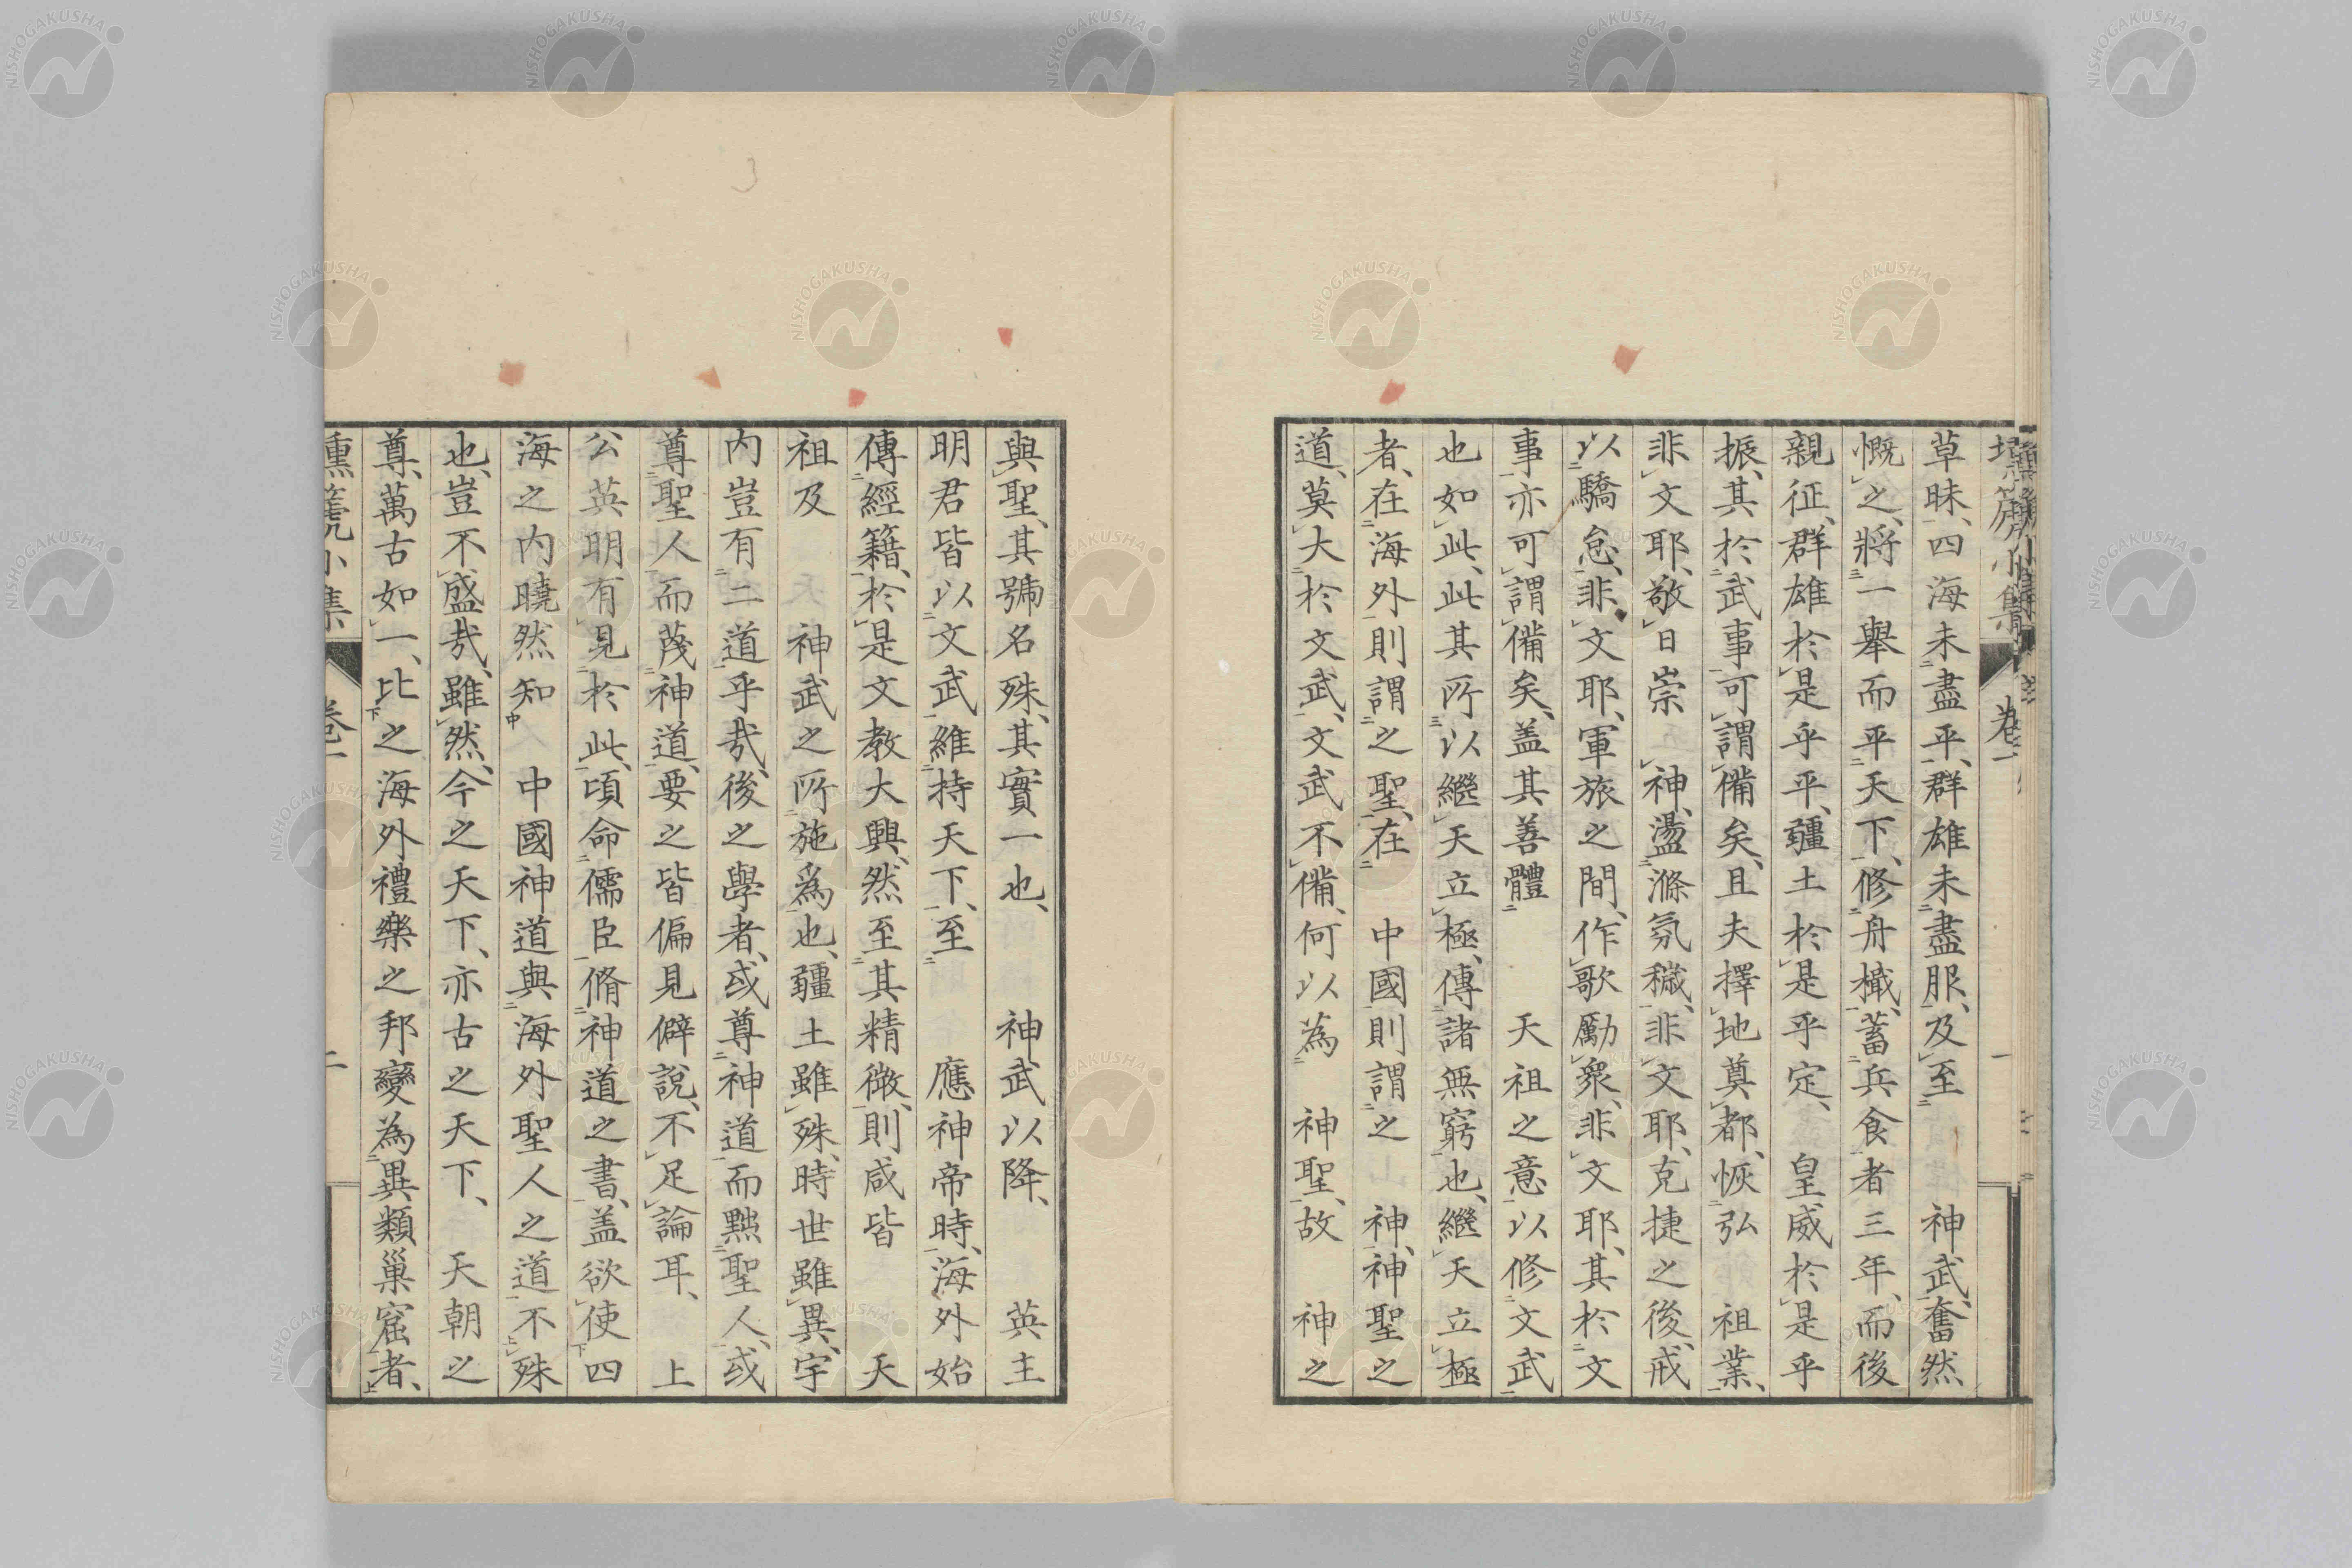 草昧、四海未盡平、群雄未盡服、及至　神武、奮然
慨之、將一舉而平天下、修舟檝、蓄兵食者三年、而後
親征、群雄於是乎平、疆土於是乎定、皇威於是乎
振、其於武事可謂備矣、且夫擇地奠都、恢弘　祖業、
非文耶、敬日崇　神、盪滌氛穢、非文耶、克捷之後、戒
以驕怠、非文耶、軍旅之間、作歌勵衆、非文耶、其於文
事亦可謂備矣、盖其善體　天祖之意以修文武
也如此、此其所以繼天立極、傳諸無窮也、繼天立極
者、在海外則謂之聖、在　中國則謂之　神、神聖之
道、莫大於文武、文武不備、何以為　神聖、故　神之
與聖、其號名殊、其實一也、　神武以降、　英主
明君皆以文武維持天下、至　應神帝時、海外始
傳經籍、於是文教大興、然至其精微、則咸皆　天
祖及　神武之所施爲也、疆土雖殊、時世雖異、宇
内豈有二道乎哉、後之學者、或尊神道而黜聖人、或
尊聖人而蔑神道、要之皆偏見僻說、不足論耳、　上
公英明有見於此、頃命儒臣脩神道之書、盖欲使四
海之内曉然知　中國神道與海外聖人之道不殊
也、豈不盛哉、雖然、今之天下、亦古之天下、　天朝之
尊、萬古如一、比之海外禮樂之邦變為異類巢窟者、
卷一
二
NISHOGAKUSHA